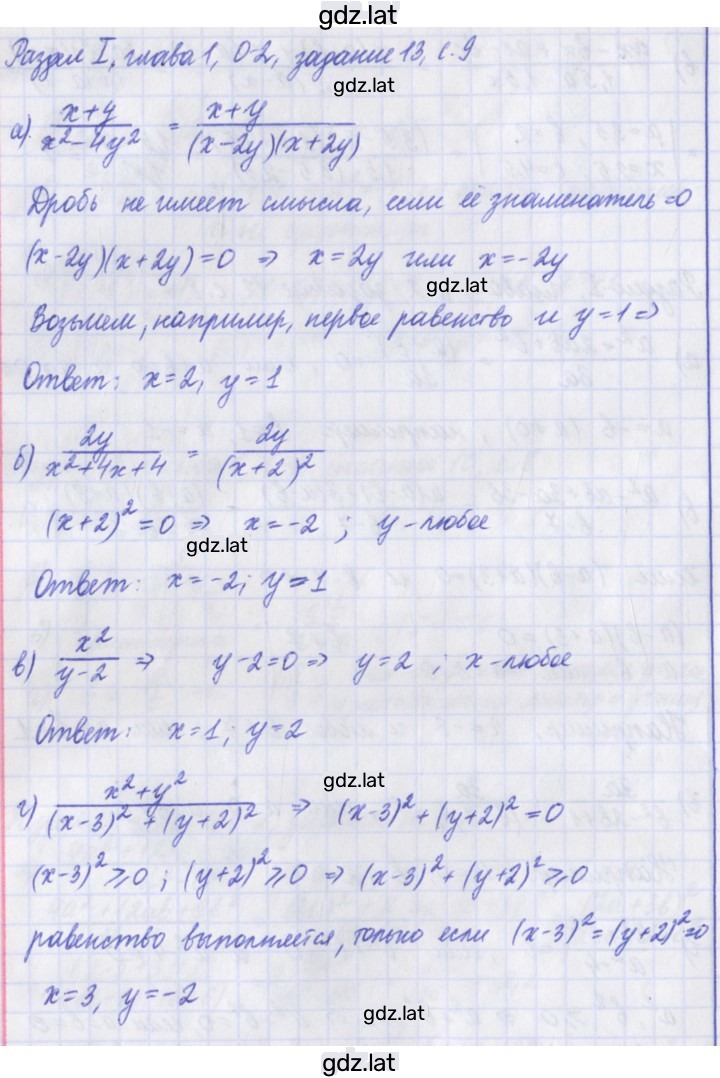 gdz.lat
Раздел I, глава 1, О-2, задание 13, с.9
gdz.lat
а) (x+y)/(x²-4y²) = (x+y)/((x-2y)(x+2y))
Дробь не имеет смысла, если её знаменатель=0
(x-2y)(x+2y)=0 ⇒ x=2y или x=-2y
gdz.lat
Возьмем, например, первое равенство и y=1⇒
Ответ: x=2, y=1
б) 2y/(x²+4x+4) = 2y/(x+2)²
(x+2)²=0 ⇒ x=-2 ; y-любое
gdz.lat
Ответ: x=-2; y=1
в) x²/(y-2) ⇒ y-2=0 ⇒ y=2 ; x-любое
Ответ: x=1; y=2
gdz.lat
г) (x²+y²)/((x-3)²+(y+2)²) ⇒ (x-3)²+(y+2)²=0
(x-3)²⩾0 ; (y+2)²⩾0 ⇒ (x-3)²+(y+2)²⩾0
равенство выполняется, только если (x-3)²=(y+2)²=0
x=3, y=-2
gdz.lat
gdz.lat